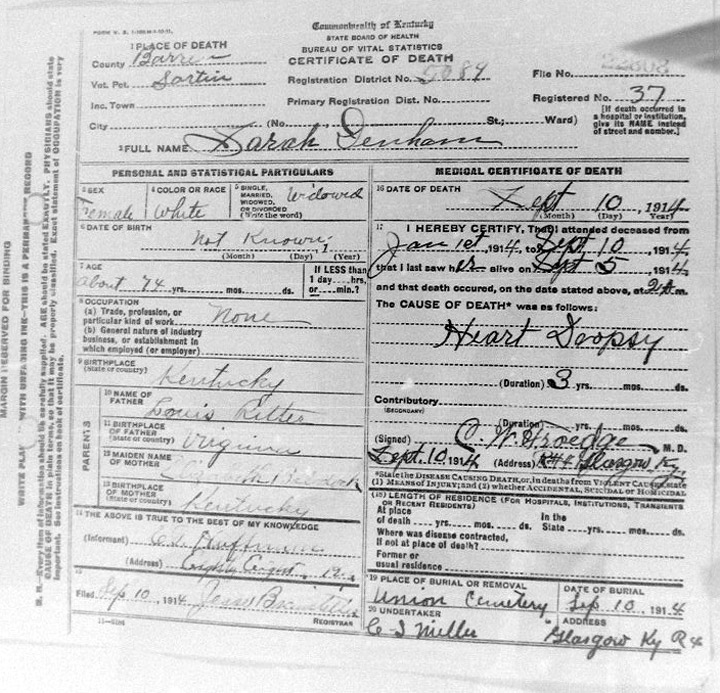 FORM V. S.
Commonwealth of Kentucky
STATE BOARD OF HEALTH
BUREAU OF VITAL STATISTICS
CERTIFICATE OF DEATH
1 PLACE OF DEATH
County Barren
Vot. Pct. Sartin
Inc. Town
City
Registration District No. 5089
File No. 22608
Primary Registration Dist. No.
Registered No. 37
(No. St.; Ward)
[If death occurred in a hospital or institution, give its NAME instead of street and number.]
2 FULL NAME Sarah Denham
PERSONAL AND STATISTICAL PARTICULARS
3 SEX Female
4 COLOR OR RACE White
5 SINGLE, MARRIED, WIDOWED, OR DIVORCED (Write the word) Widowed
6 DATE OF BIRTH Not Known, 1
(Month) (Day) (Year)
7 AGE about 74 yrs. mos. ds.
If LESS than 1 day hrs. or min.?
8 OCCUPATION
(a) Trade, profession, or particular kind of work None
(b) General nature of industry business, or establishment in which employed (or employer)
9 BIRTHPLACE (State or country) Kentucky
PARENTS
10 NAME OF FATHER Louis Ritter
11 BIRTHPLACE OF FATHER (State or country) Virginia
12 MAIDEN NAME OF MOTHER
13 BIRTHPLACE OF MOTHER (State or country) Kentucky
14 THE ABOVE IS TRUE TO THE BEST OF MY KNOWLEDGE
(Informant) Huffman
(Address)
15
Filed Sep 10, 1914
REGISTRAR
MEDICAL CERTIFICATE OF DEATH
16 DATE OF DEATH Sept 10, 1914
(Month) (Day) Year
17 I HEREBY CERTIFY, That I attended deceased from
Jan 1st, 1914, to Sept 10, 1914,
that I last saw her alive on Sept 5, 1914,
and that death occured, on the date stated above, at 2 m.
The CAUSE OF DEATH* was as follows:
Heart Dropsy
(Duration) 3 yrs. mos. ds.
Contributory
(SECONDARY)
(Duration) yrs. mos. ds.
(Signed) C. W. Froedge M. D.
Sept. 10, 1914 (Address) R#4 Glasgow Ky.
*State the DISEASE CAUSING DEATH, or, in deaths from VIOLENT CAUSES, state (1) MEANS OF INJURY; and (2) whether ACCIDENTAL, SUICIDAL or HOMICIDAL
(18) LENGTH OF RESIDENCE (FOR HOSPITALS, INSTITUTIONS, TRANSIENTS OR RECENT RESIDENTS)
At place of death yrs. mos. ds. In the State yrs. mos. ds.
Where was disease contracted, If not at place of death?
Former or usual residence
19 PLACE OF BURIAL OR REMOVAL
Union Cemetery
DATE OF BURIAL
Sep. 10, 1914
20 UNDERTAKER
C S Miller
ADDRESS
Glasgow Ky R4
MARGIN RESERVED FOR BINDING